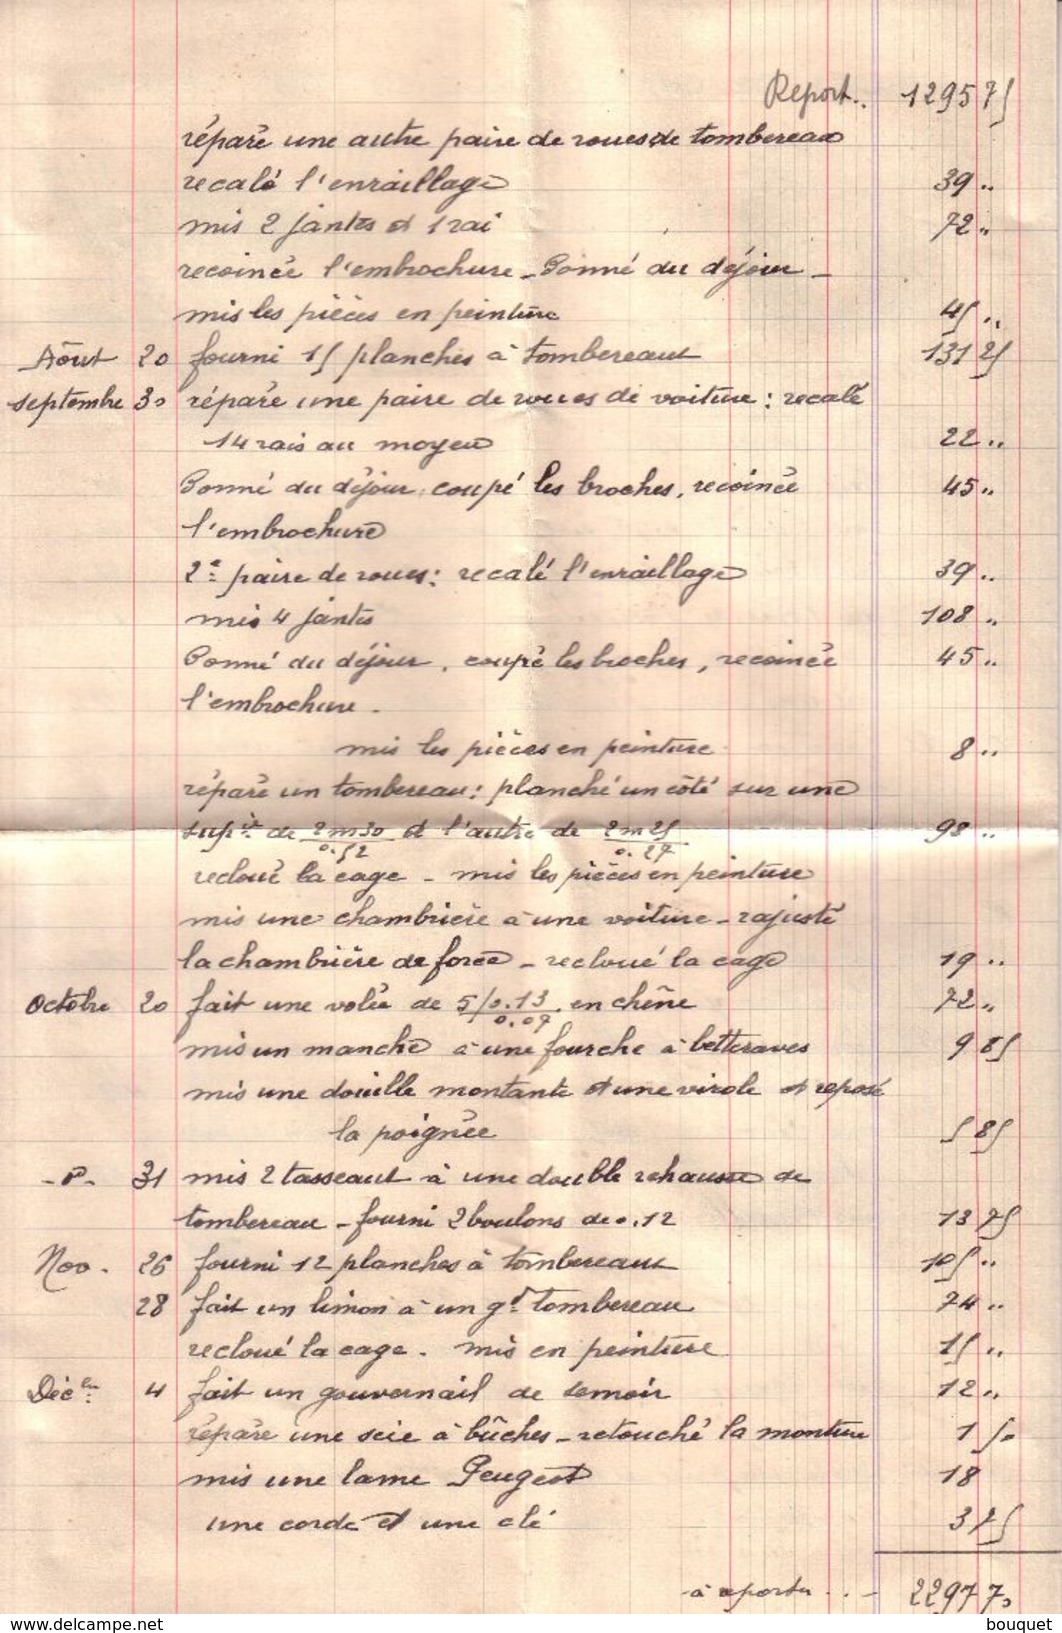 Report.. 1295 75
réparé une autre paire de roues de tombereau
recalé l'enraillage 39 ..
mis 2 jantes et 1 rai 72 ..
recoincé l'embrochure - Donné du déjour -
mis les pièces en peinture 45 ..
Août 20 fourni 15 planches à tombereaux 131 25
septembre 30 réparé une paire de roues de voiture : recalé
14 rais au moyeu 22 ..
Donné du déjour, coupé les broches, recoincé 45 ..
l'embrochure
2e paire de roues : recalé l'enraillage 39 ..
mis 4 jantes 108 ..
Donné du déjour, coupé les broches, recoincé 45 ..
l'embrochure .
mis les pièces en peinture 8 ..
réparé un tombereau : planché un côté sur une
supie de 2m30 et l'autre de 2m25 98 ..
0.52 0.27
recloué la cage - mis les pièces en peinture
mis une chambrière à une voiture - rajusté
la chambrière de force - recloué la cage 19 ..
Octobre 20 fait une volée de 5/0.13 en chêne 72 ..
0.07
mis un manche à une fourche à betteraves 9 85
mis une douille montante et une virole et reposé
la poignée 5 85
- d° - 31 mis 2 tasseaux à une double rehausse de
tombereau - fourni 2 boulons de 0.12 13 75
Nov. 26 fourni 12 planches à tombereaux 105 ..
28 fait un limon à un gd tombereau 74 ..
recloué la cage . mis en peinture 15 ..
Décbre 4 fait un gouvernail de semoir 12 ..
réparé une scie à bûches - retouché la monture 1 50
mis une lame Peugeot 18
une corde et une clé 3 75
à reporter . . - 2297 70
https://www.delcampe.net
bouquet